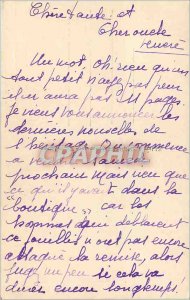 Chère tante et
Cher oncle
Un mot oh! rien qu'un
tout petit n'ayez pas peur
il n'y aura pas 11 pages
je veux vous annoncer les
dernières nouvelles de
commence
prochain mais rien que
ce qu'il y avait dans la
"boutique" car les
hommes qui déblaient
ce fouillis n'ont pas encore
attaqué la remise, alors
juge un peu si cela va
durer encore longtemps.